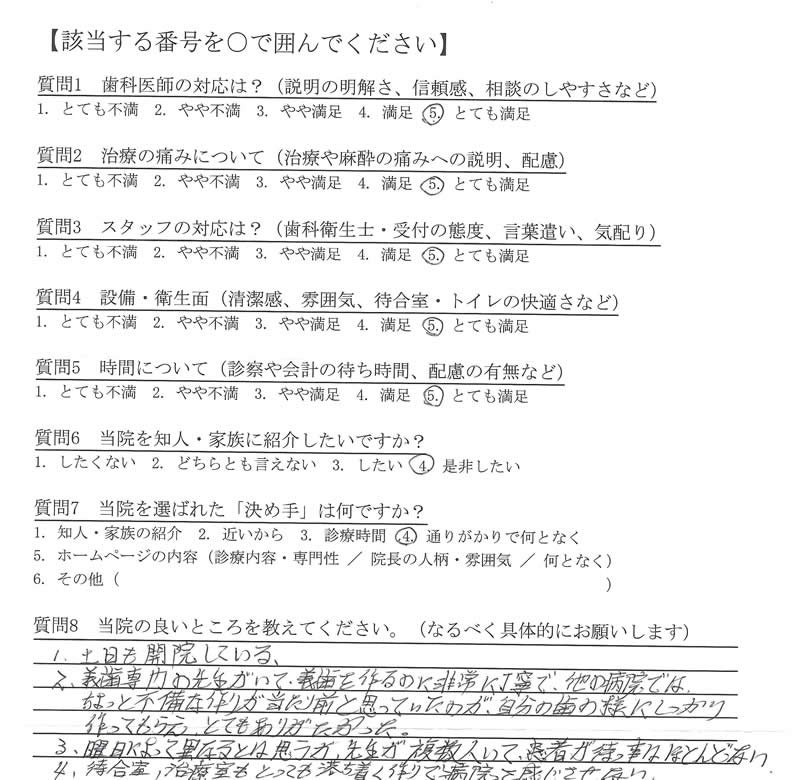 【該当する番号を○で囲んでください】
質問1 歯科医師の対応は？（説明の明解さ、信頼感、相談のしやすさなど）
1. とても不満 2. やや不満 3. やや満足 4. 満足 5. とても満足
質問2 治療の痛みについて（治療や麻酔の痛みへの説明、配慮）
1. とても不満 2. やや不満 3. やや満足 4. 満足 5. とても満足
質問3 スタッフの対応は？（歯科衛生士・受付の態度、言葉遣い、気配り）
1. とても不満 2. やや不満 3. やや満足 4. 満足 5. とても満足
質問4 設備・衛生面（清潔感、雰囲気、待合室・トイレの快適さなど）
1. とても不満 2. やや不満 3. やや満足 4. 満足 5. とても満足
質問5 時間について（診察や会計の待ち時間、配慮の有無など）
1. とても不満 2. やや不満 3. やや満足 4. 満足 5. とても満足
質問6 当院を知人・家族に紹介したいですか？
1. したくない 2. どちらとも言えない 3. したい 4. 是非したい
質問7 当院を選ばれた「決め手」は何ですか？
1. 知人・家族の紹介 2. 近いから 3. 診療時間 4. 通りがかりで何となく
5. ホームページの内容（診療内容・専門性 ／ 院長の人柄・雰囲気 ／ 何となく）
6. その他（ ）
質問8 当院の良いところを教えてください。（なるべく具体的にお願いします）
1. 土日も開院している、
2、義歯専門の先生がいて、義歯を作るのに非常に丁寧で、他の病院では、
ちょっと不備な作りが当たり前と思っていたのが、自分の歯の様にしっかり
作ってもらえ、とてもありがたかった。
3、曜日によって異なるとは思うが、先生が複数人いて、患者が待つ事はほとんどない
4、待合室、治療室もとっても落ち着く作りで病院って感じさせない